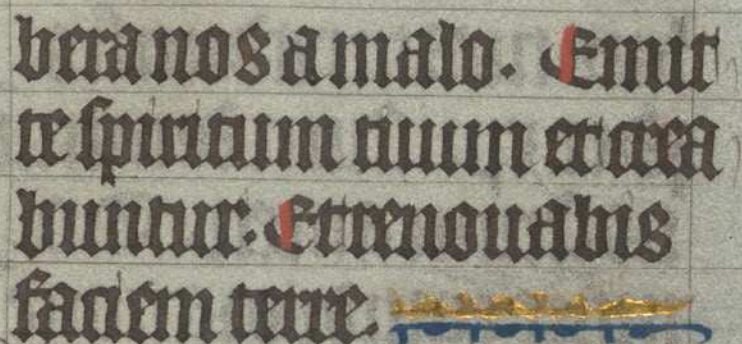 bera nos a malo. Emit
te spiritum tuum et crea
buntur. Et renouabis
faciem terre.